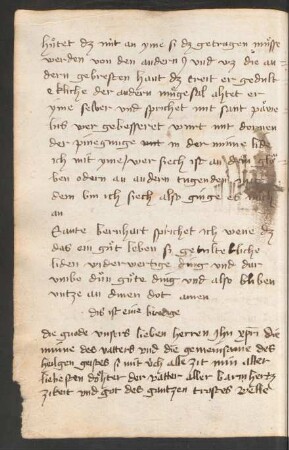 hu̍tet dz nüt an yme si dz getragen mu̍sse
werden von den andern / vnd wz die an
dern gebresten hant dz treit er gedult
ekliche der andern ahtet er
yme selber vnd sprichet mit sant paule
wer gebesseret wirt mit
der pineginge in der minne lide
ich mit yme / wer siech ist an dem glö
ben odern an andern tugenden
dem bin ich siech also ginge es
an
Sante bernhart sprichet ich wene dz
das ein gu̍t leben si gedulteklichе
liden widerwertige ding vnd dar
vmbe du̍n gu̍te ding vnd also bliben
vntze an dinen dot amen
dis ist eine
die gnade vnsers lieben herren ihu xpri die
minne des vatters vnd die gemeinsame des
heilgen geistes si mit v̍ch alle zit min aller
liebesten do̍hter der vatter aller barmhertz
zikeit vnd got des gantzen trostes